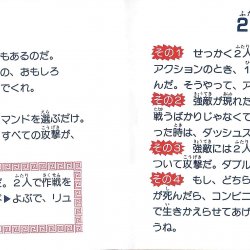 もあるのだ。
の、おもしろ
でくれ。
マンドを選ぶだけ。
すべての攻撃が、
だ。2人で作戦を
ド▶よぶで、リュ
2
その1 せっかく2人
アクションのとき、1
んだ。そうやって、ア
その2 強敵が現れた
戦うばかりじゃなくて
った時は、ダッシュス
その3 強敵には2人
ついて攻撃だ。ダブル
その4 もし、どちら
が死んだら、コンビニ
で生きかえらせてあげ
うね。